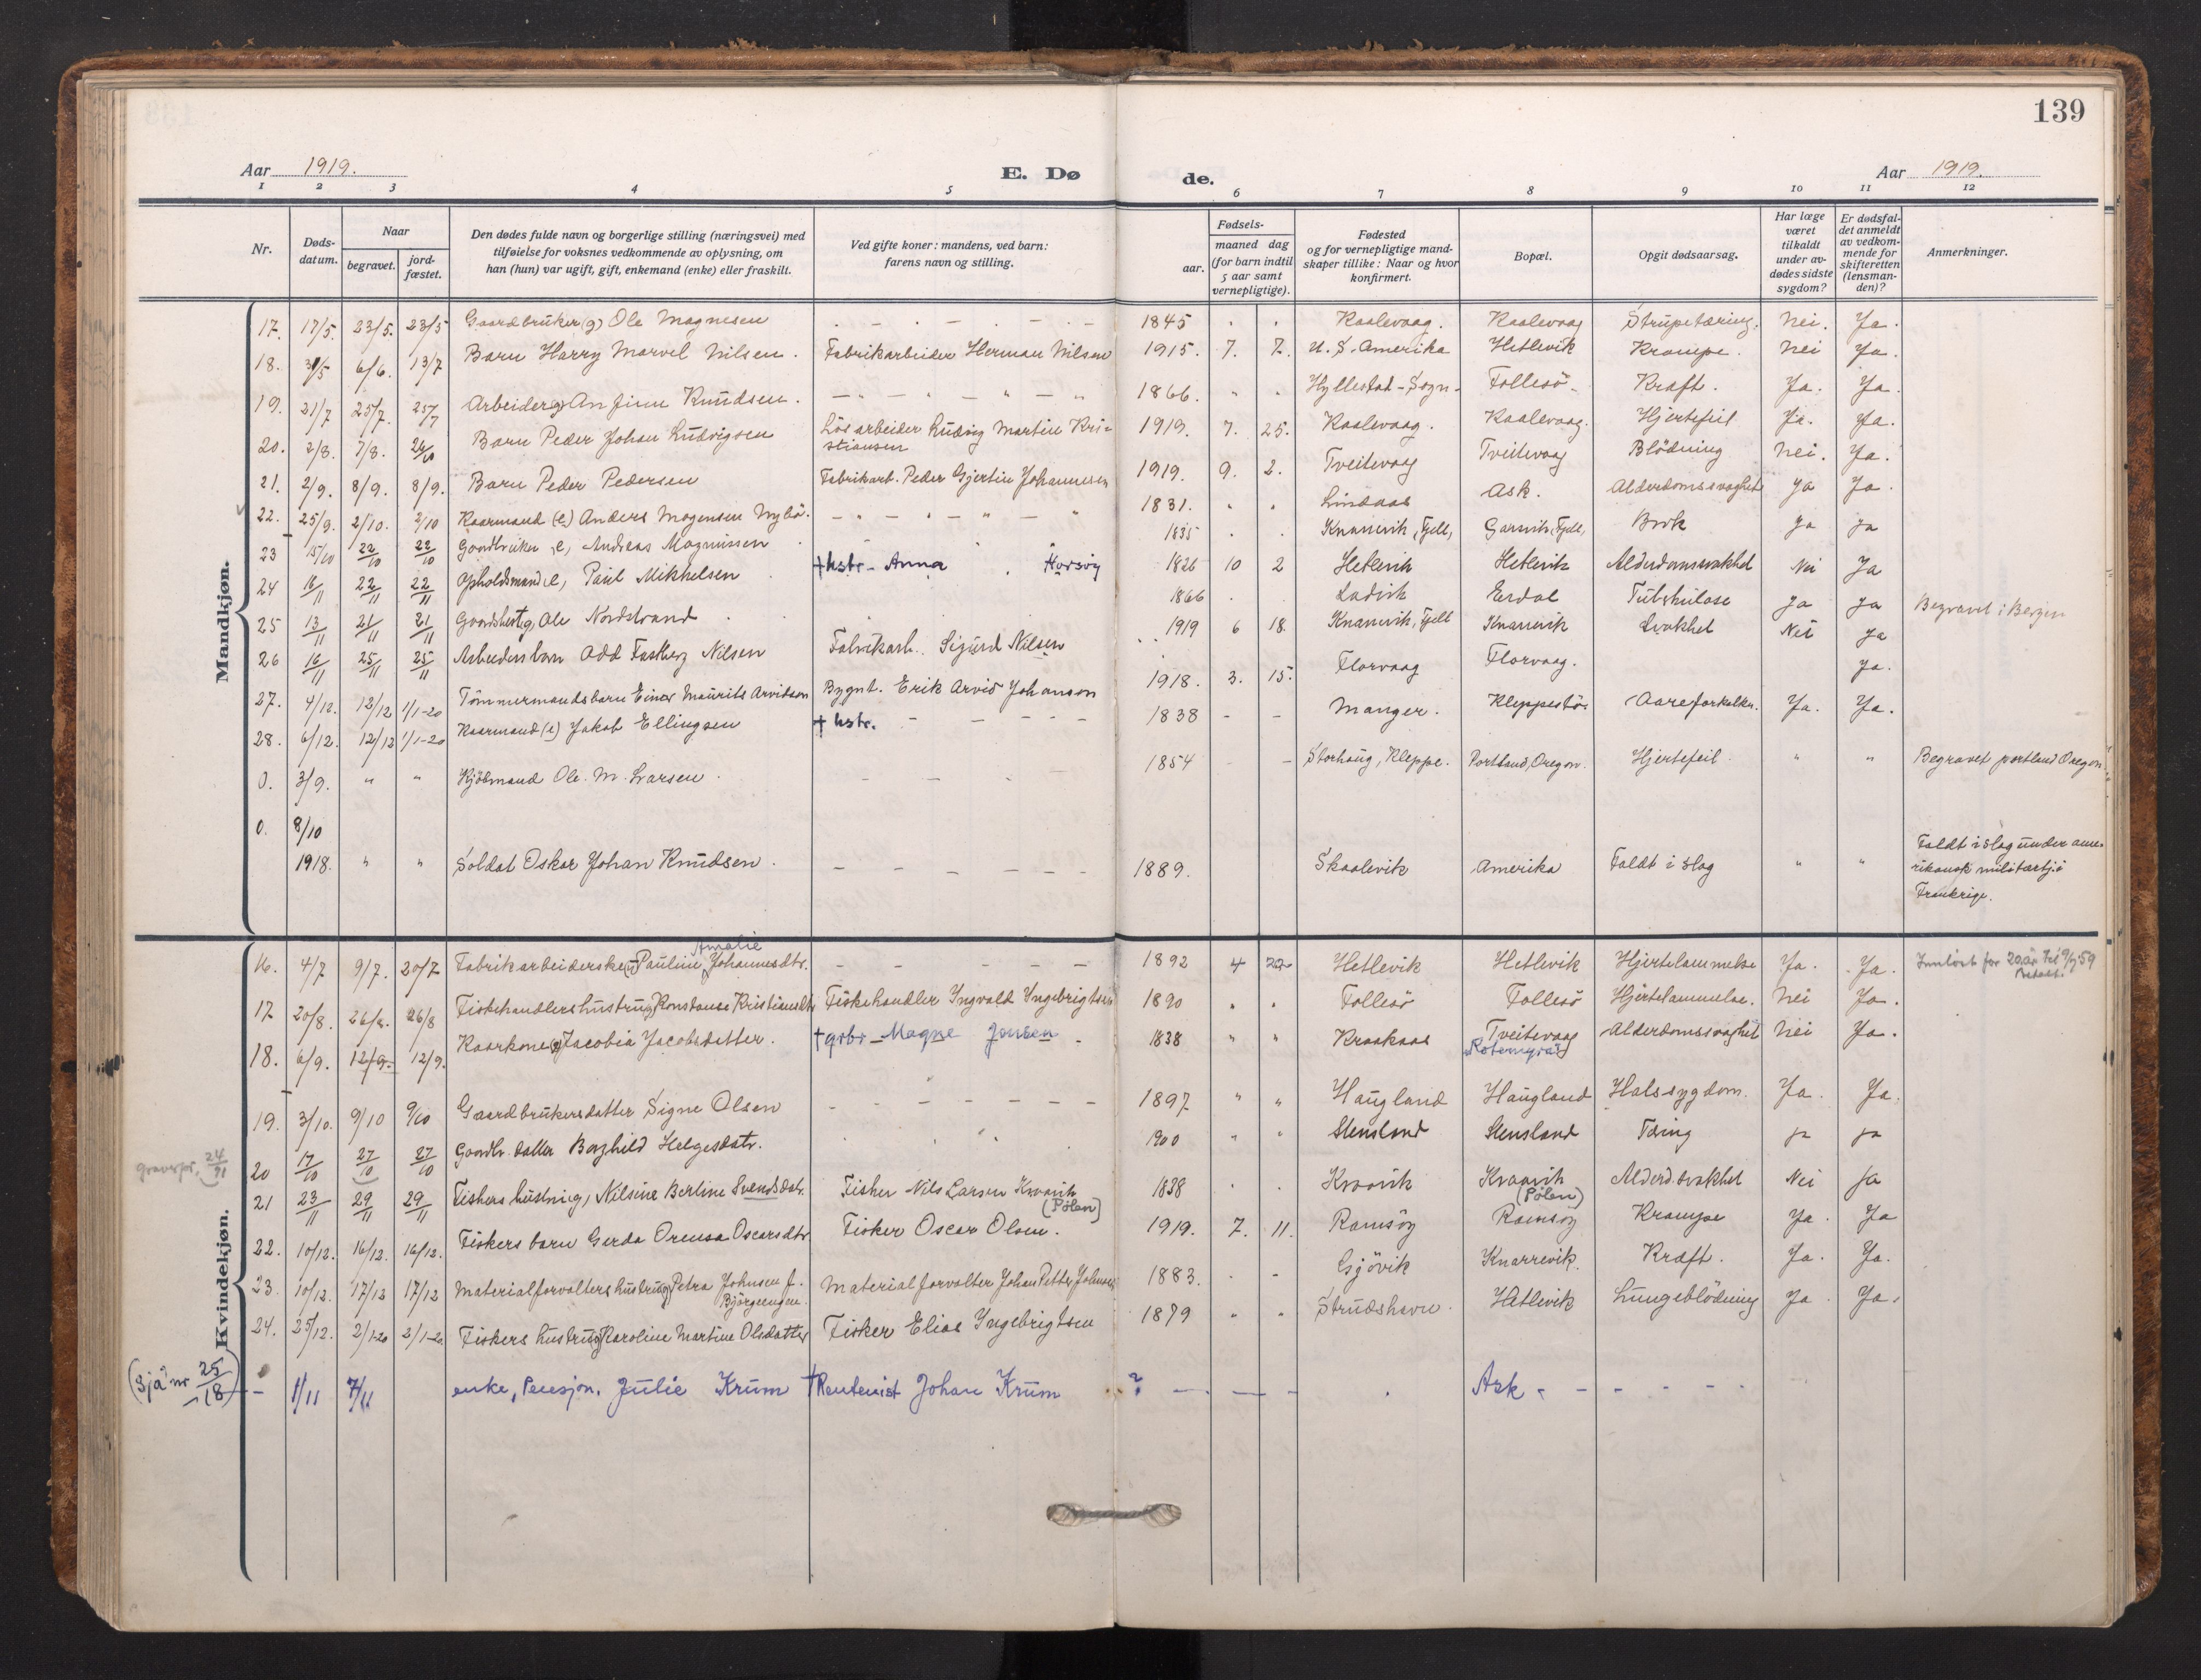 139
Aar 1919. E. Dø de. Aar 1919.
1 2 3 4 5 6 7 8 9 10 11 12
Nr.
Døds-
datum.
Naar
begravet.
jord-
fæstet.
Den dødes fulde navn og borgerlige stilling (næringsvei) med
tilføielse for voksnes vedkommende av oplysning, om
han (hun) var ugift, gift, enkemand (enke) eller fraskilt.
Ved gifte koner: mandens, ved barn:
farens navn og stilling.
Fødsels-
aar.
maaned dag
(for barn indtil
5 aar samt
vernepligtige).
Fødested
og for vernepligtige mand-
skaper tillike: Naar og hvor
konfirmert.
Bopæl.
Opgit dødsaarsag.
Har læge
været
tilkaldt
under av-
dødes sidste
sygdom?
Er dødsfal-
det anmeldt
av vedkom-
mende for
skifteretten
(lensman-
den)?
Anmerkninger.
Mandkjøn.
17. 17/5. 23/5. 23/5 Gaardbruker (g) Ole Magnesen 1845 Kaalevaag. Kaalevaag Strupetæring. Nei. Ja.
18. 31/5 6/6. 13/7 Barn Harry Marvel Nilsen. Fabrikarbeider Herman Nilsen 1915. 7. 7. U.S. Amerika Hetlevik Krampe. Nei Ja.
19. 21/7 25/7. 25/7 Arbeider (g) Anfinn Knudsen. 1866. Hyllestad - Sogn Follesö Kræft. Ja. Ja.
20. 2/8. 7/8. 26/10 Barn Peder Johan Ludvigsen Lösarbeider Ludvig Martin Kri-
stiansen 1919. 7. 25. Kaalevaag. Kaalevaag. Hjertefeil Ja. Ja.
21. 2/9. 8/9. 8/9. Barn Peder Pedersen Fabrikarb. Peder Gjertin Johannesen 1919. 9. 2. Tveitevaag Tveitevaag Blödning Nei. Ja.
22. 25/9. 2/10. 2/10 Kaarmand (e) Anders Mogensen Nybö. 1831. Lindaas Ask. Alderdomssvaghet Ja Ja.
23 15/10 22/10 22/10 Gaardbruker e, Andreas Magnussen 1835 Knarrvik, Fjell, Garnvik, Fjell, Brok Ja Ja
24 16/11 22/11 22/11 Opholdsmand e, Paul Mikkelsen + hstr. Anna Horsøy 1826 10 2 Hetlevik Hetlevik Alderdomssvakhet Nei Ja
25 13/11 21/11 21/11 Gaardbest. g, Ole Nordstrand 1866 Ladvik Erdal Tuberkulose Ja Ja Begravet i Bergen
26 16/11 25/11 25/11 Arbeidersbarn Odd Fastberg Nilsen Fabrikarb. Sigurd Nilsen 1919 6 18. Knarrvik, Fjell Knarrvik Svakhet Nei Ja
27. 4/12. 12/12 1/1-20 Tömmermandsbarn Einar Maurits Arvidson Bygnt. Erik Arvid Johanson 1918. 3. 15. Florvaag Florvaag. Ja.
28. 6/12. 12/12 1/1-20 Kaarmand (e) Jakob Ellingsen + hstr. 1838 Manger. Kleppestö. Aareforkalkn. Ja. Ja.
0. 3/9. " " Kjöbmand Ole. M. Larsen. 1854 Storhaug, Kleppe. Portland, Oregon. Hjertefeil " " Begravet portland Oregon
0. 8/10
1918. " " Soldat Oskar Johan Knudsen. 1889. Skaalevik Amerika Faldt i slag " " Faldt i slag under ame-
rikansk militærtj. i
Frankrige.
Kvindekjøn.
Amalie
16. 4/7 9/7. 20/7 Fabrikarbeiderske (u) Pauline Johannesdtr. 1892 4 22 Hetlevik Hetlevik Hjertelammelse Ja. Ja. Innløst for 20 år til 9/7 59
Betalt.
17. 20/8. 26/8. 26/8 Fiskehandlers hustru (g) Konstanse Kristiansdtr Fiskehandler Ingvald Ingebrigtsen 1890 Follesö Follesö Hjertelammelse. Nei Ja.
18. 6/9. 12/9. 12/9. Kaarkone (e) Jacobia Jacobsdatter. + grbr. Magne Jonsen 1838 " " Kraakaas Tveitevaag Alderdomssvaghet Nei Ja.
Rotemyra
19. 3/10. 9/10 9/10 Gaardbrukersdatter Signe Olsen 1897 " " Haugland Haugland Halssygdom. Ja. Ja.
graverpr. 24/91
20 17/10 27/10 27/10 Gaardbr. datter Borghild Helgesdatr. 1900 " " Stensland Stensland Tæring Ja Ja
21 23/11 29/11 29/11 Fiskers hustru g, Nilsine Berline Svendsdtr. Fisker Nils Larsen Kraavik
(Pølen) 1838 Kraavik Kraavik
(Pølen) Alderd. svakhet Nei Ja
22. 10/12. 16/12. 16/12. Fiskers barn Gerda Orensa Oscarsdtr Fisker Oscar Olsen. 1919. 7. 11. Ramsöy Ramsöy Krampe Ja. Ja
23. 10/12. 17/12 17/12 Materialforvalters hustru (g) Petra Johnsen f.
Björgeengen. Materialforvalter Johan Petter Johnsen 1883. Gjövik Knarrevik. Kræft. Ja. Ja.
24. 25/12. 2/1-20 2/1-20. Fiskers hustru (g) Karoline Martine Olsdatter Fisker Elias Ingebrigtsen 1879 " " Strudshavn. Hetlevik Lungeblödning Ja Ja.
(Sjå nr 25/18) - 1/11 7/11 enke, Pensjon. Julie Krum + Rentenist Johan Krum ? Ask